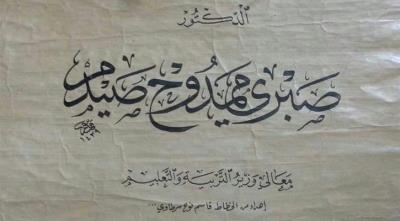 الدكتور
صبري ممدوح صيدم
١٤٣٨
معالي وزير التربية والتعليم
إهداء من الخطاط قاسم نوح سرطاوي...